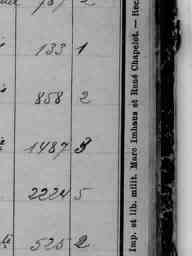 133 1
858 2
1487 3
2224 5
525 2
Imp. et lib. milit. Marc Imhaus et René Chapelot. — Rec